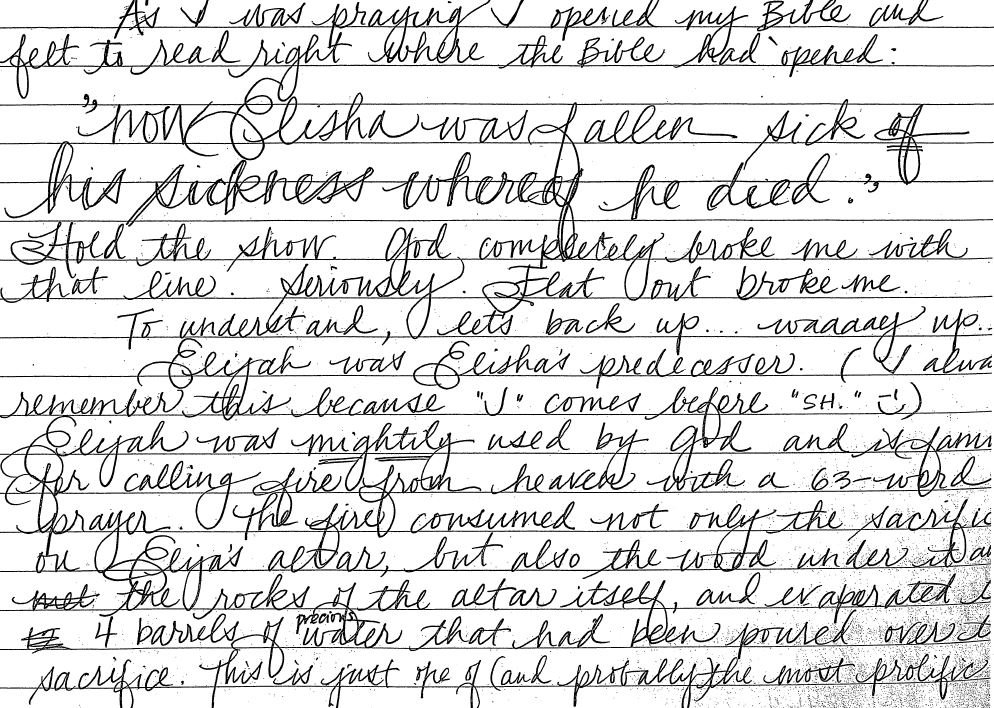 As I was praying I opened my Bible and
felt to read right where the Bible had opened:
"now Elisha was fallen sick of
his sickness whereof he died."
Hold the show. God completely broke me with
that line. Seriously. Flat out broke me.
To understand, let's back up... waaaay up..
Elijah was Elisha's predecesser. (I alwa
remember this because "J" comes before "SH." :)
Elijah was mightily used by God and is fam
for calling fire from heaven with a 63-word
prayer. The fire consumed not only the sacrific
on Elija's altar, but also the wood under it an
met the rocks of the altar itself, and evaporated
4 barrels of precious water that had been poured over t
sacrifice. This is just one of (and probably) the most prolific